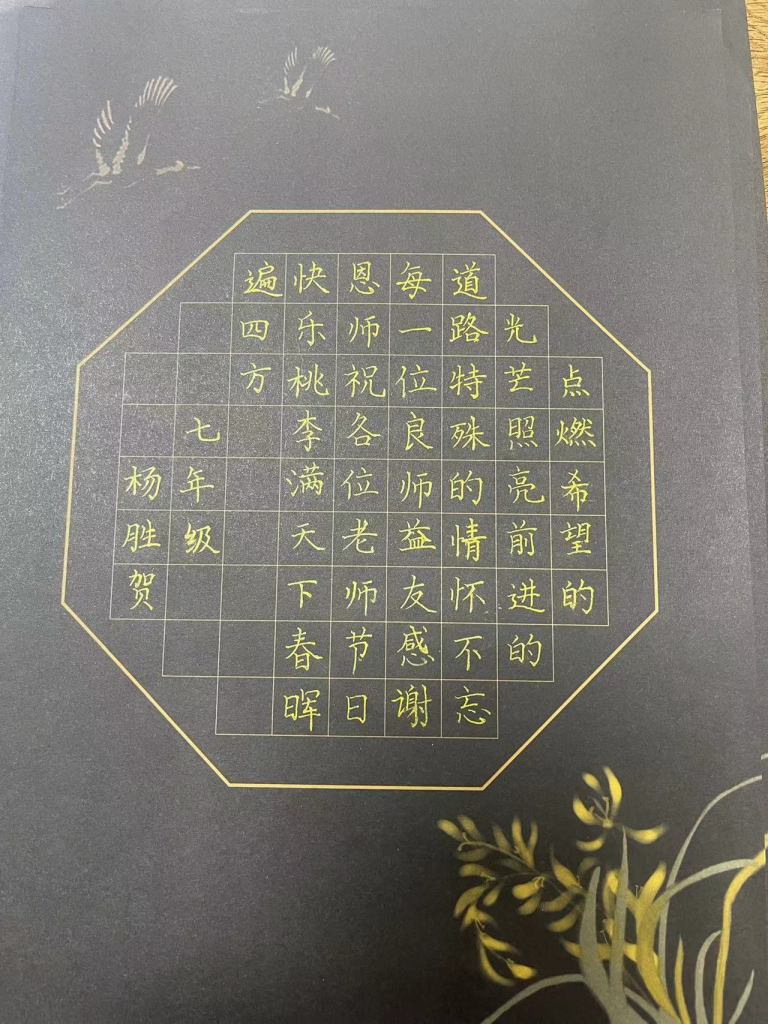 点燃希望的
光芒照亮前进的
道路特殊的情怀不忘
每一位良师益友感谢
恩师祝各位老师节日
快乐桃李满天下春晖
遍四方
七年级
杨胜贺